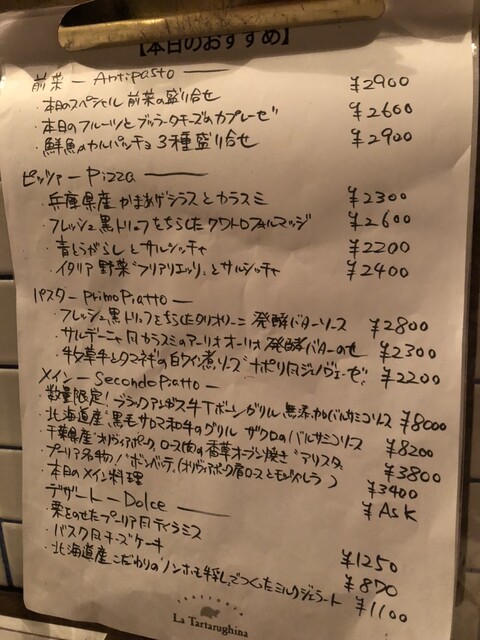 【本日のおすすめ】
前菜 — Antipasto —
・本日のスペシャル 前菜の盛り合せ ¥2900
・本日のフルーツとブッラータチーズのカプレーゼ ¥2600
・鮮魚のカルパッチョ 3種盛り合せ ¥2900
ピッツァ — Pizza —
・兵庫県産 かまあげシラスとカラスミ ¥2300
・フレッシュ黒トリュフをちらしたクワトロフォルマッジ ¥2600
・青とうがらしとサルシッチャ ¥2200
・イタリア野菜"フリアリエッリ"とサルシッチャ ¥2400
パスタ — Primo Piatto —
・フレッシュ黒トリュフをちらしたタリオリーニ 発酵バターソース ¥2800
・サルデーニャ風カラスミのアーリオオーリオ 発酵バターのせ ¥2300
・牧草牛とタマネギの白ワイン煮ソース"ナポリ風ジェノヴェーゼ" ¥2200
メイン — Secondo Piatto —
・数量限定!ブラックアンガス牛Tボーングリル 無添加バルサミコソース ¥8000
・北海道産"黒毛サロマ和牛のグリル ザクロのバルサミコソース ¥8200
・千葉県産"オリヴィアポーク"ロース肉の香草オーブン焼き"アリスタ" ¥3800
・プーリア名物!"ボンベッテ"(オリヴィアポーク肩ロースとモッツァレラ) ¥3400
・本日のメイン料理 ¥Ask
デザート — Dolce —
・栗をのせたプーリア風ティラミス ¥1250
・バスク風チーズケーキ ¥870
・北海道産こだわりの"ノンホモ牛乳"でつくったミルクジェラート ¥1100
TRATTORIA
La Tartarughina